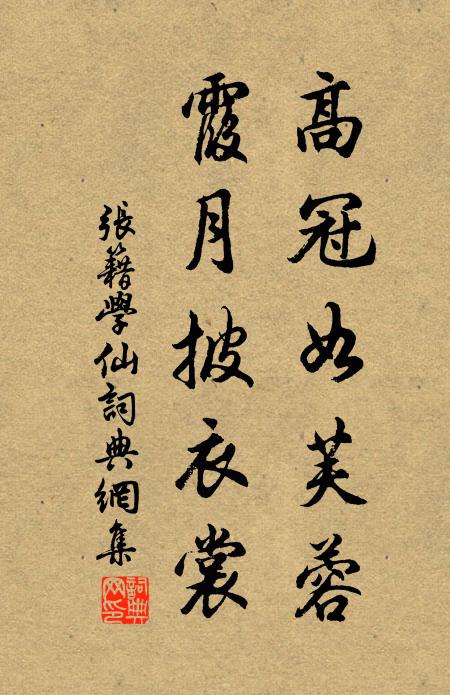 高冠如芙蓉
霞月披衣裳
張籍學仙詞典網集
詞典網印